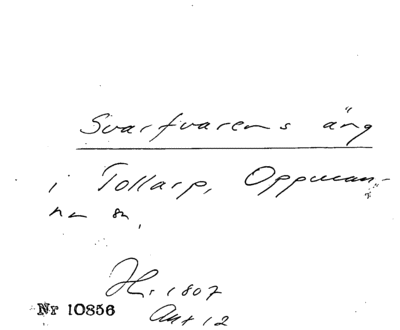 Svarfvarens äng
i Tollarp, Oppman-
na sn,
Hr. 1807
Akt 12
Nr 10856